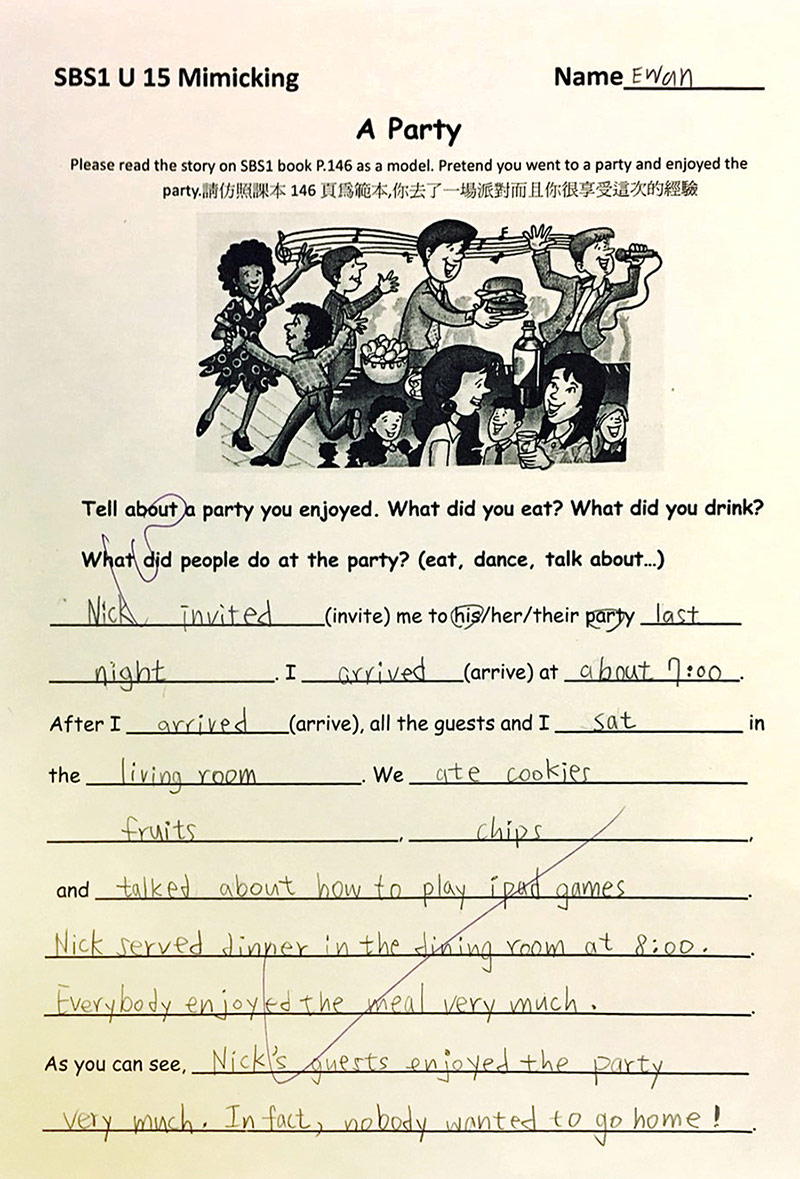 SBS1 U 15 Mimicking Name Ewan
A Party
Please read the story on SBS1 book P.146 as a model. Pretend you went to a party and enjoyed the
party.請仿照課本 146 頁爲範本,你去了一場派對而且你很享受這次的經驗
Tell about a party you enjoyed. What did you eat? What did you drink?
What did people do at the party? (eat, dance, talk about...)
Nick invited (invite) me to his/her/their party last
night. I arrived (arrive) at about 7:00.
After I arrived (arrive), all the guests and I sat in
the living room. We ate cookies
fruits, chips,
and talked about how to play ipad games.
Nick served dinner in the dining room at 8:00.
Everybody enjoyed the meal very much.
As you can see, Nick's guests enjoyed the party
very much. In fact, nobody wanted to go home!.